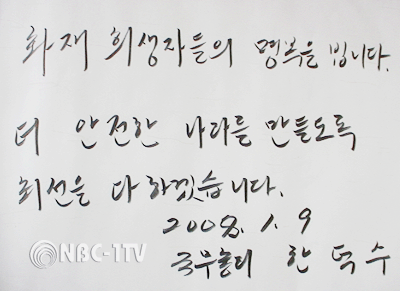 화재 희생자들의 명복을 빕니다.
더 안전한 나라를 만들도록
최선을 다 하겠습니다.
2008. 1. 9
국무총리 한덕수
NBC-1TV